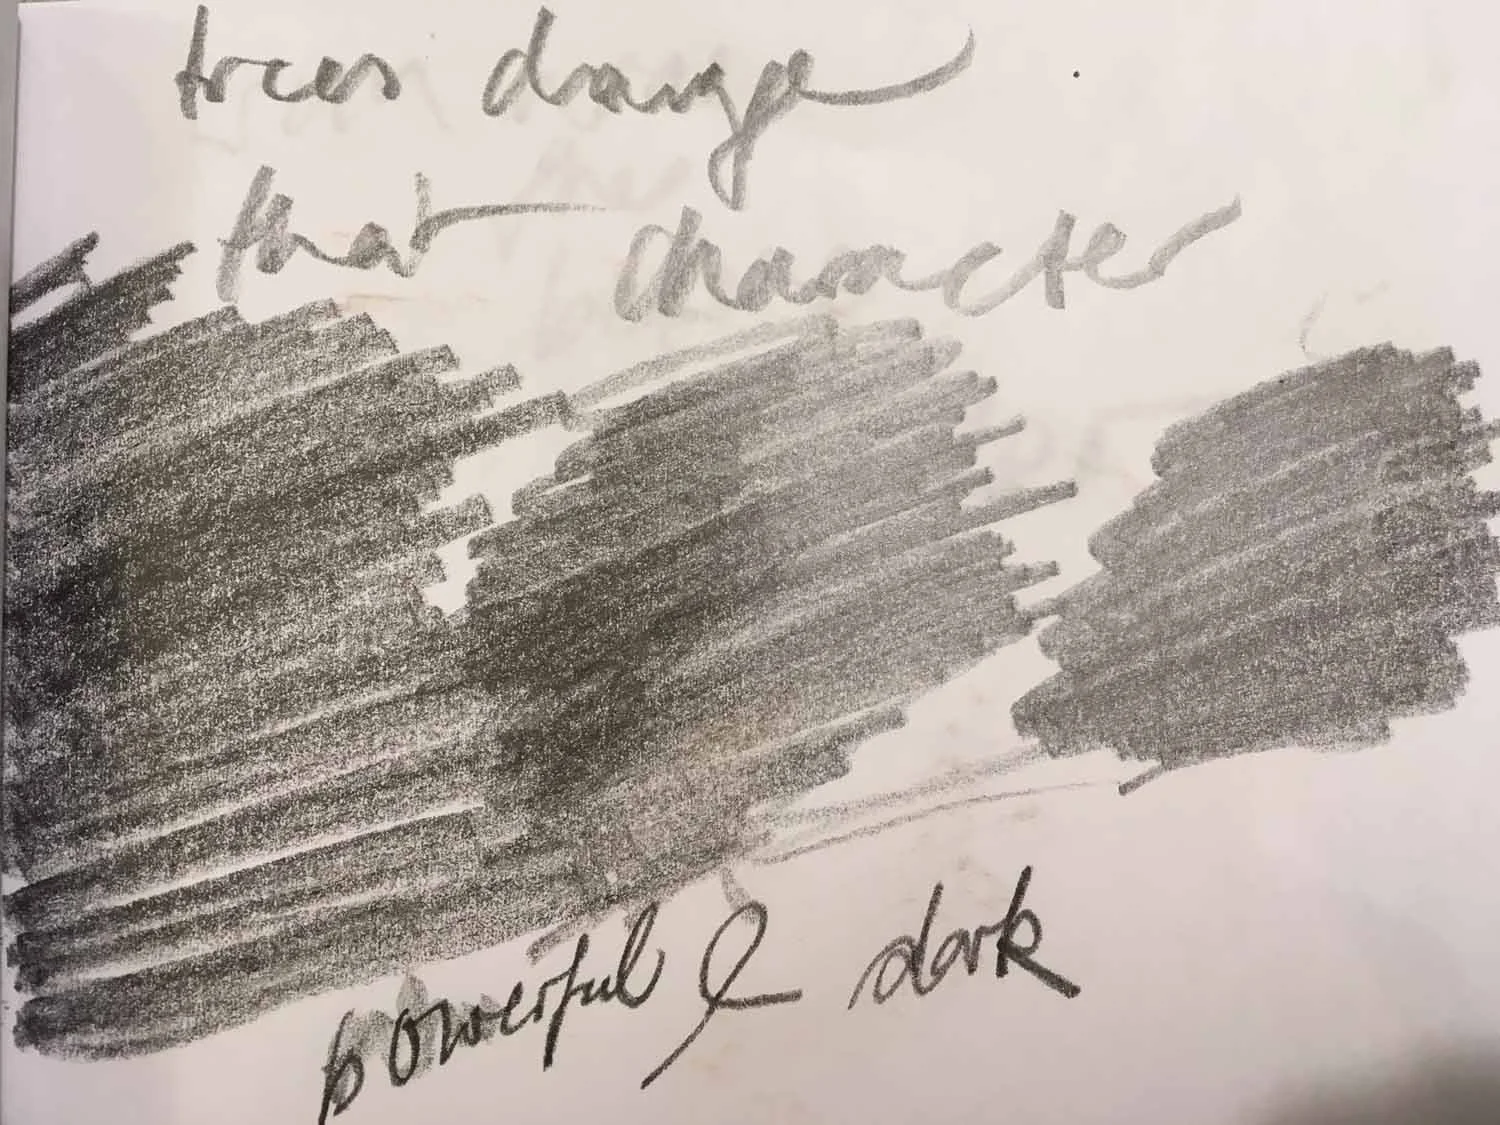 trees change
that character
powerful & dark